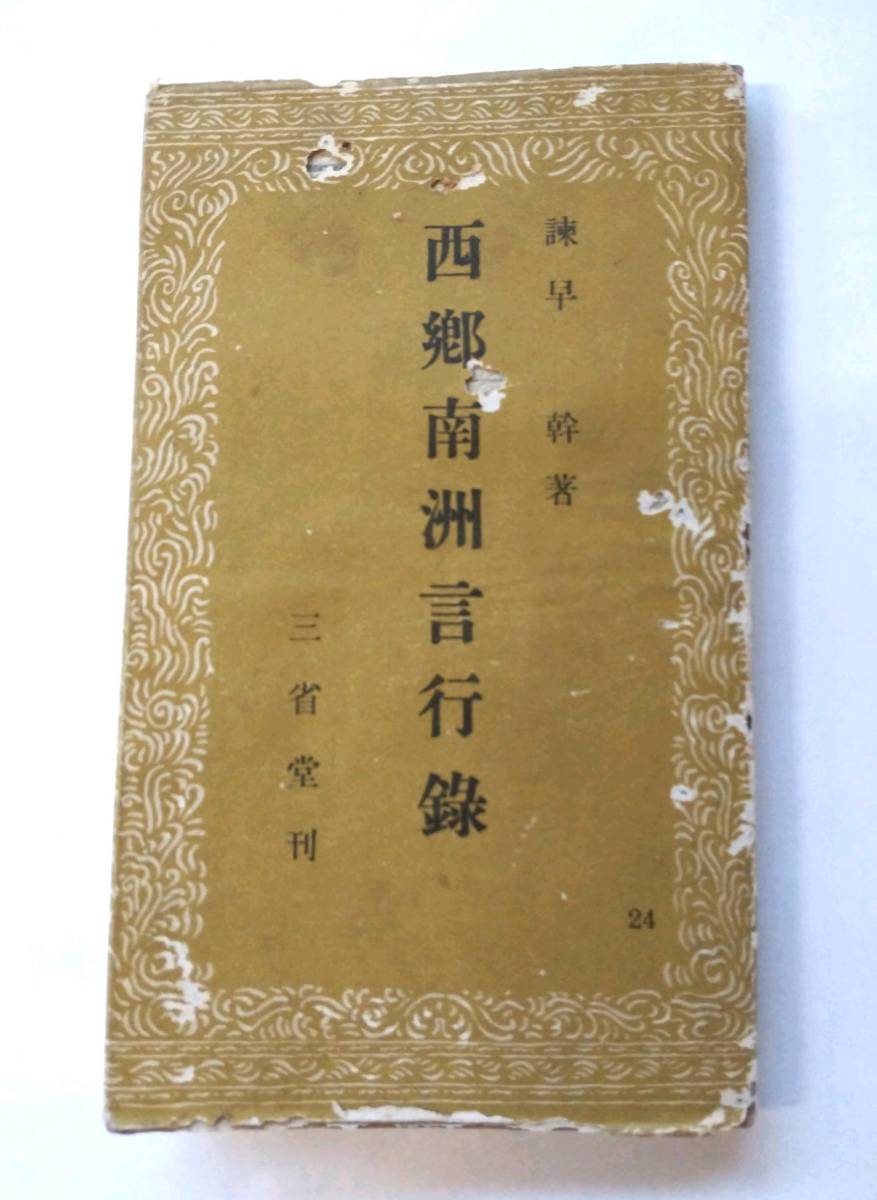 諫早 幹著
西鄕南洲言行錄
三省堂刊
24